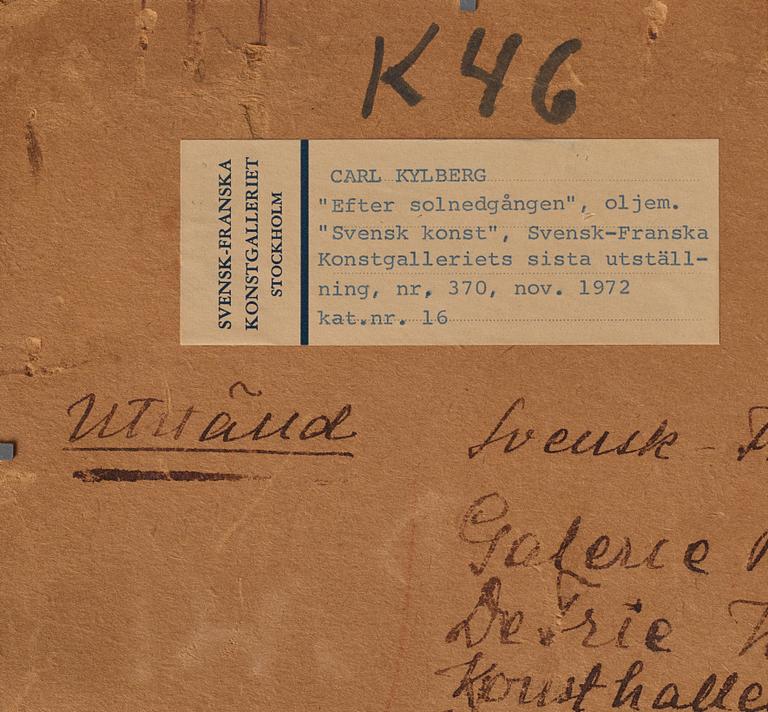 K 46
SVENSK-FRANSKA
KONSTGALLERIET
STOCKHOLM
CARL KYLBERG
"Efter solnedgången", oljem.
"Svensk konst", Svensk-Franska
Konstgalleriets sista utställ-
ning, nr, 370, nov. 1972
kat.nr. 16
Svensk -
Galerie
De Frie
Konsthalle